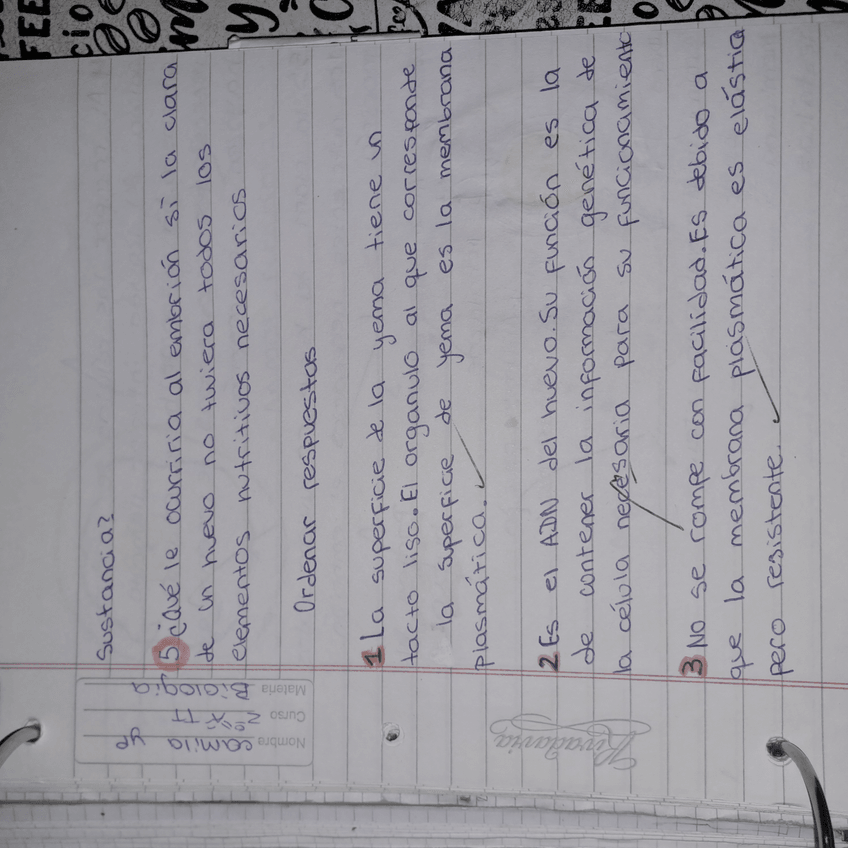 sustancia?
5 ¿Qué le ocurriria al embrión si la clara
de un huevo no tuviera todos los
elementos nutritivos necesarios
Ordenar respuestas
1 La superficie de la yema tiene un
tacto liso. El organulo al que corresponde
la superficie de yema es la membrana
plasmática.
2 Es el ADN del huevo. Su función es la
de contener la información genética de
la célula necesaria para su funcionamiento
3 No se rompe con facilidad. Es debido a
que la membrana plasmática es elástica
pero resistente.
Nombre camila yp
Curso
Materia Biología
Rivadavia